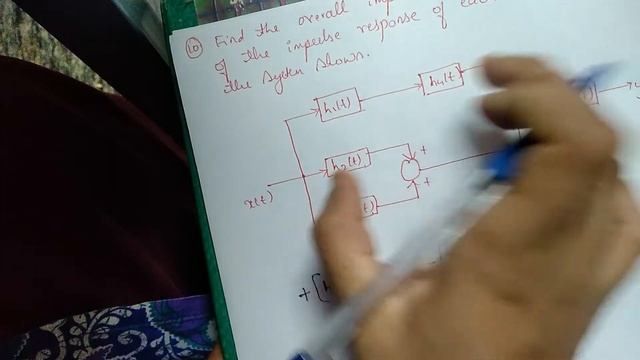 10 Find the overall imp
of the impulse response of ea
the system shown.
h₁(t) h₄(t
h₂(t)
x(t) t)
+
+
+ [h